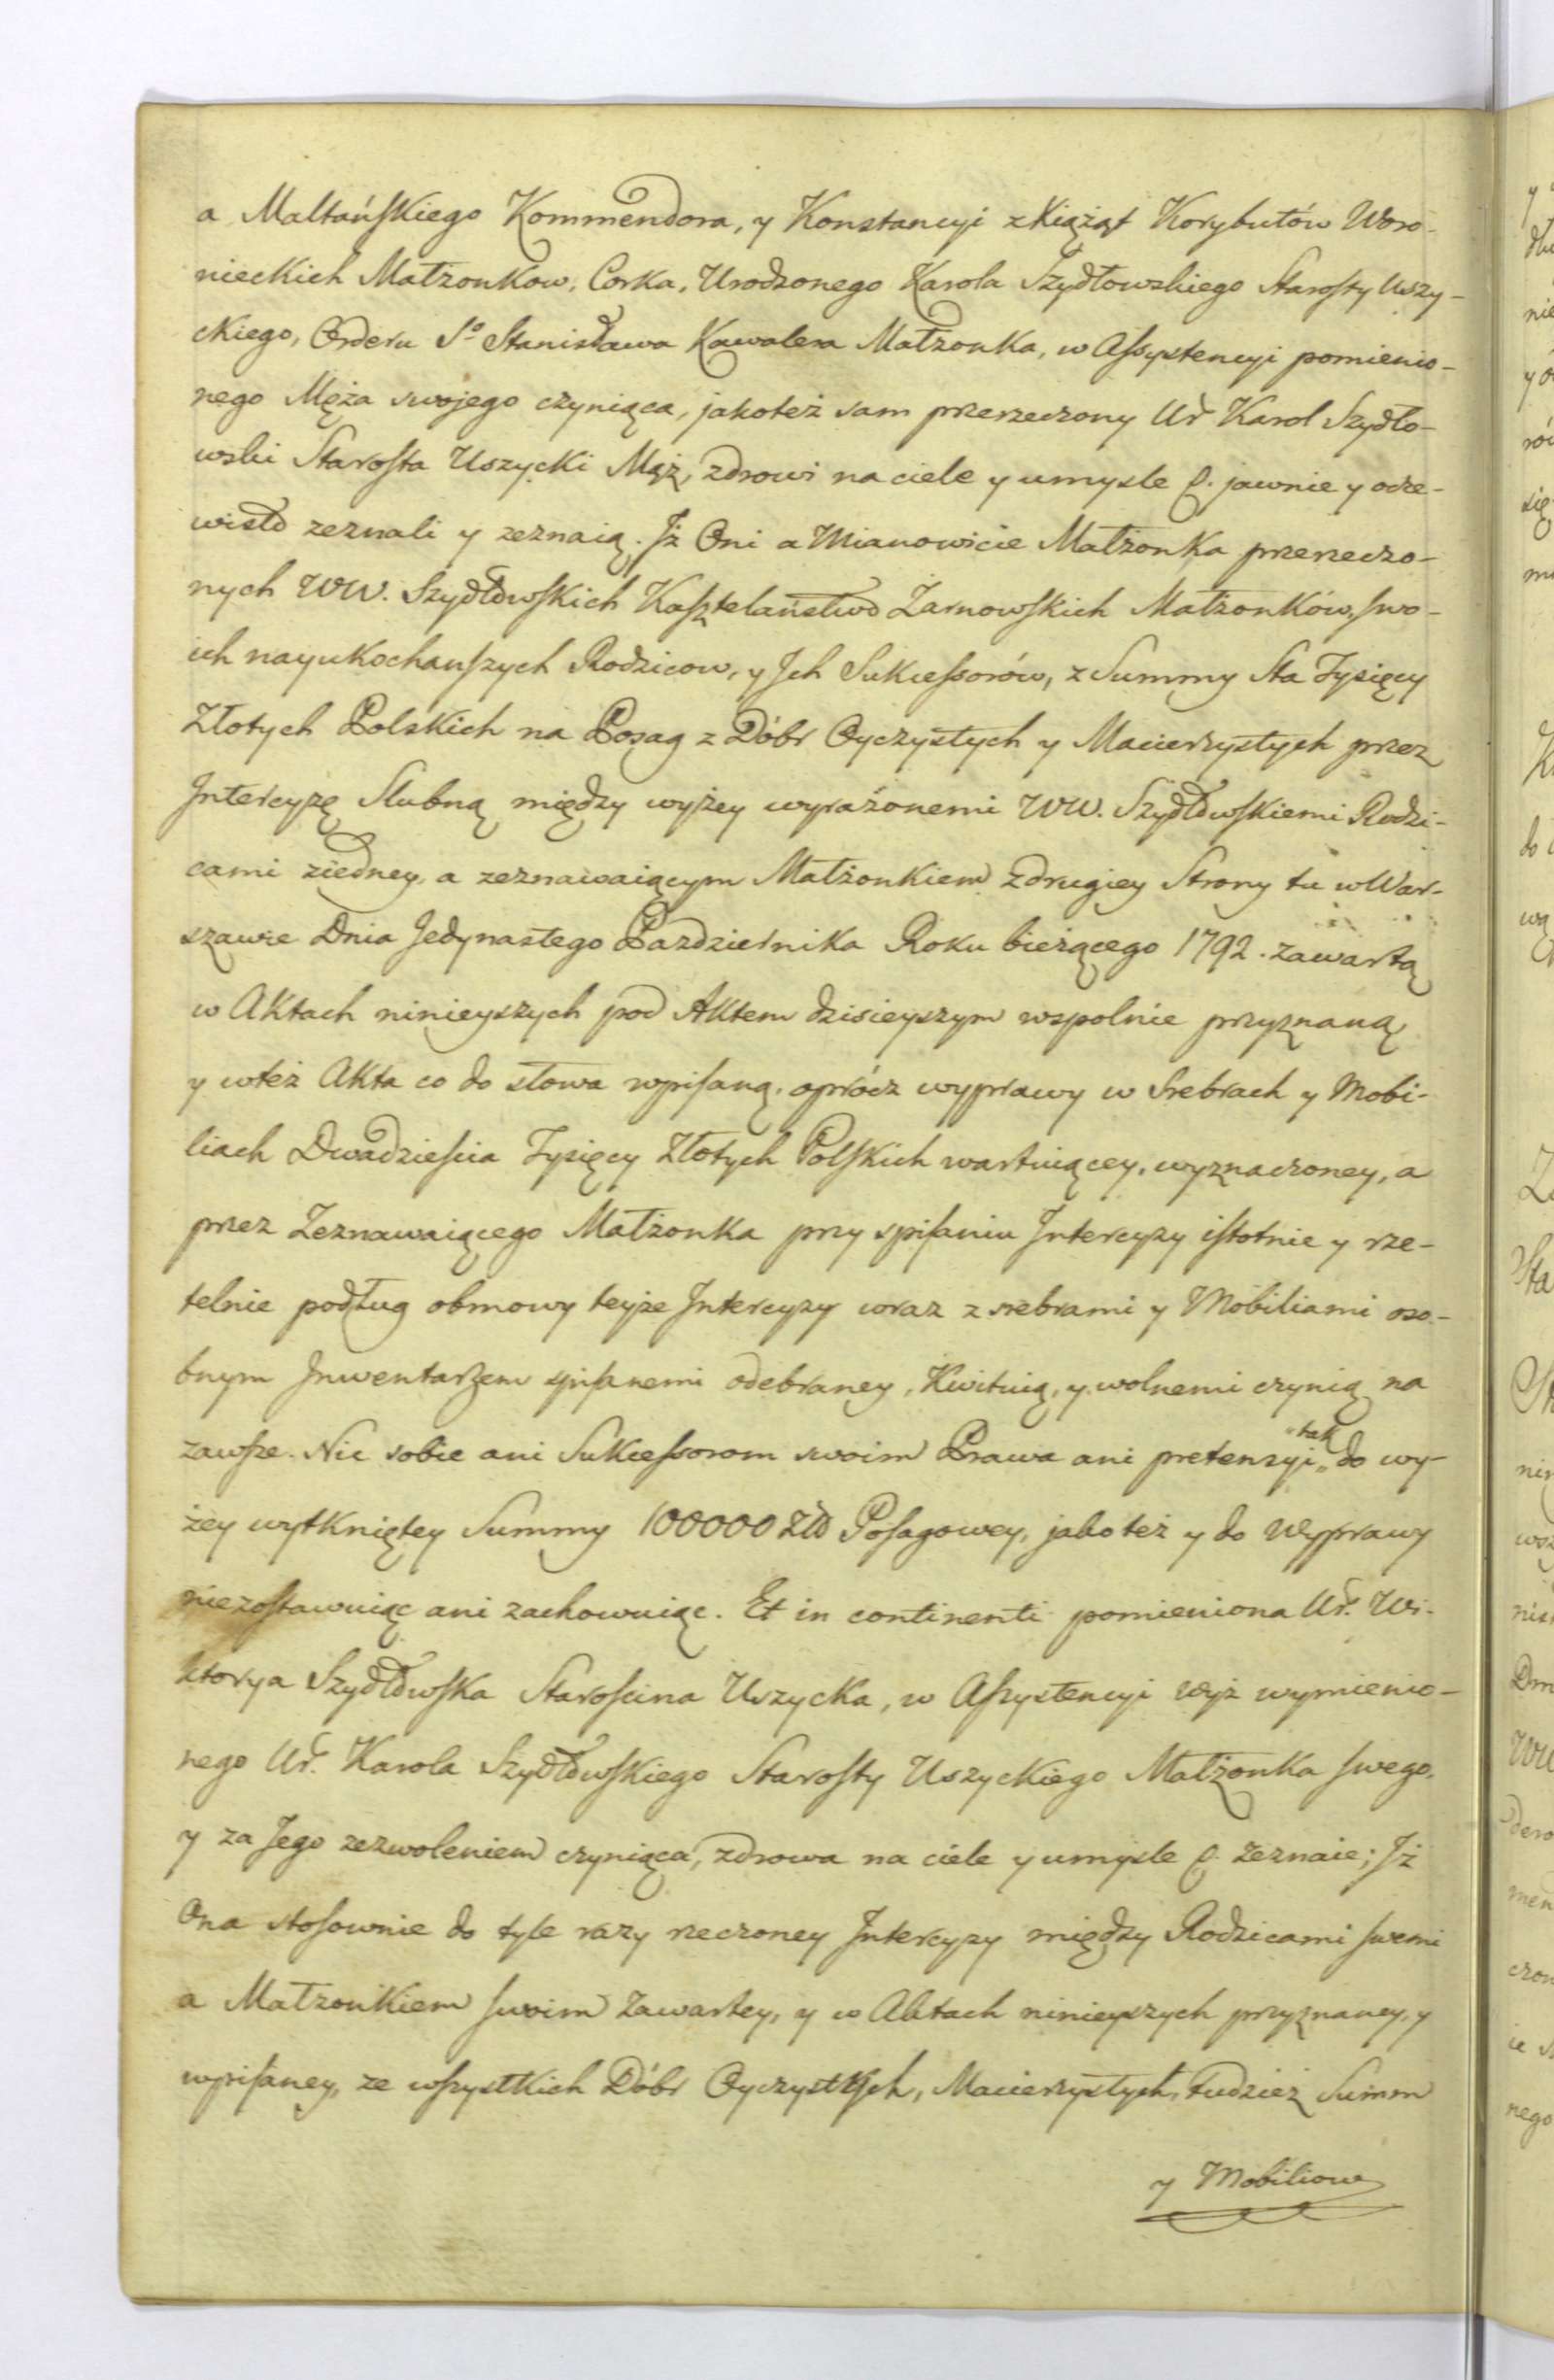 a Maltańskiego Kommendora, y Konstancyi z Xiążąt Korybutów Woro-
nieckich Małzonkow, Corka, Urodzonego Karola Szydłowskiego Starosty Uszy-
ckiego, Orderu So Stanisława Kawalera Małzonka, w Assystencyi pomienio-
nego Męża swojego czyniąca, jakoteż sam przerzeczony Ur Karol Szydło-
wski Starosta Uszycki Mąż, zdrowi na ciele y umysle p. jawnie y ocze-
wisto zeznali y zeznaią. Jż Oni a Mianowicie Małżonka przerzeczo-
nych WW. Szydłowskich Kasztelaństwo Żarnowskich Małżonków, swo-
ich nayukochanszych Rodzicow, y Jch Sukcessorów, z Summy Sta Tysięcy
Złotych Polskich na Posag z Dóbr Oyczystych y Macierzystych przez
Jntercyzę Slubną między wyżey wyrażonemi WW. Szydłowskiemi Rodzi-
cami ziedney, a zeznawaiącym Małżonkiem zdrugiey Strony tu w War-
szawie Dnia Jedynastego Pazdziernika Roku bieżącego 1792. zawartą
w Aktach ninieyszych pod Aktem dzisieyszym wspolnie przyznaną
y wteż Akta co do słowa wpisaną, oprócz wyprawy w Srebrach y Mobi-
liach Dwadziescia Tysięcy Złotych Polskich wartuiącey, wyznaczoney, a
przez Zeznawaiącego Małżonka przy spisaniu Jntercyzy istotnie y rze-
telnie podług obmowy teyże Jntercyzy wraz z srebrami y Mobiliami oso-
bnym Jnwentarzem spisanemi odebraney, Kwituią, y wolnemi czynią na
zawsze. Nic sobie ani Sukcessorom swoim Prawa ani pretensyi "tak" do wy-
żey wytkniętey Summy 100000 Zło Posagowey, jako też y do Wyprawy
niezostawuiąc ani zachowuiąc. Et in continenti pomieniona Ur. Wi-
ktorya Szydłowska Starościna Uszycka, w Assystencyi wyż wymienio-
nego Ur. Karola Szydłowskiego Starosty Uszyckiego Małżonka swego,
y za Jego zezwoleniem czyniąca, zdrowa na ciele y umysle p. Zeznaie; Jż
Ona stosownie do tyle razy rzeczoney Jntercyzy między Rodzicami swemi
a Małzonkiem swoim Zawartey, y w Aktach ninieyszych przyznaney, y
wpisaney, ze wszystkich Dóbr Oyczystych, Macierzystych, tudzież Summ
y Mobiliow